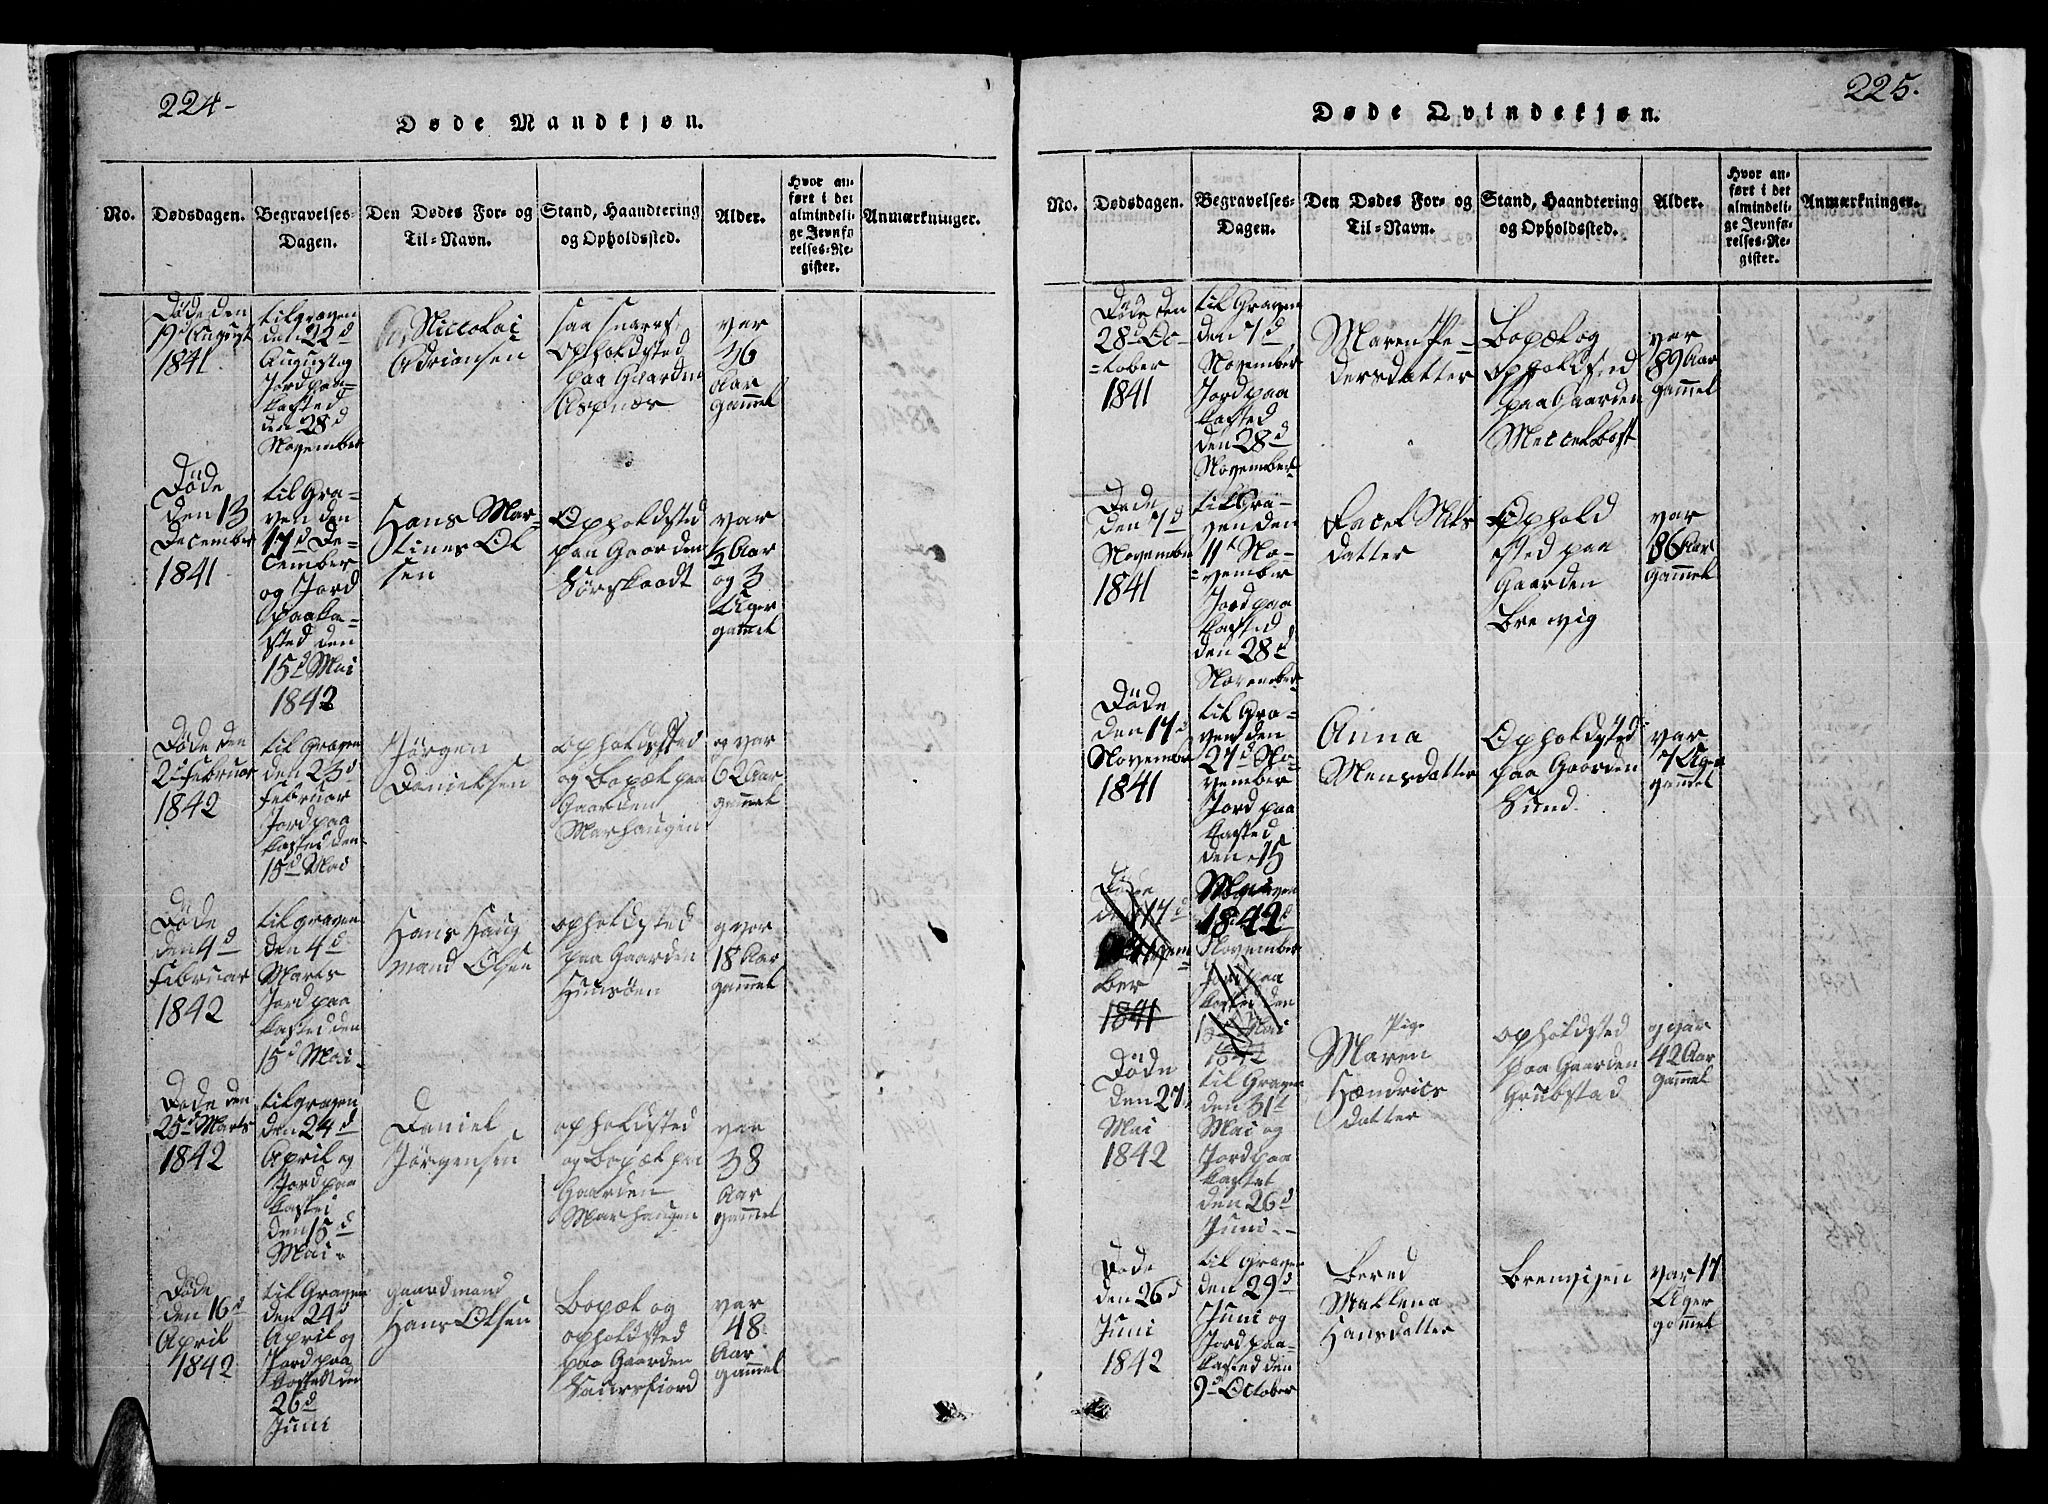 224-
Døde Mandkjøn.
No.
Dødsdagen.
Begravelses-
Dagen.
Den Dødes For- og
Til-Navn.
Stand, Haandtering
og Opholdssted.
Alder.
Hvor an-
ført i det
almindeli-
ge Jevnfø-
relses-Re-
gister.
Anmærkninger.
Døde den
19d August
1841
til graven
den 22d
August og
Jord paa-
kasted
den 28d
November
Niccolai
Adriansen
opholdsted
paa Gaarden
Aspnær
var
36
Aar
gammel
Døde
den 13
December
1841
til Gra-
ven den
17d De-
cember
og Jord
paaka-
sted den
15d Mai
1842
Hans Mar-
tines Ol
sen
Opholdsted
paa Gaarden
Sørskaadt
var
Aar
og 3
Uger
gamel
Døde den
Februar
1842
til Graven
den 23d
Februar
Jord paa
kasted den
15d Mai
Jørgen
Danielsen
opholdsted
og Bopæl paa
Gaarden
Marhaugen
og var
62 Aar
gammel
Døde
den 4d
Februar
1842
til graven
den 4d
Marts
Jord paa
kasted den
15d Mai
Hans Haug
mand Olsen
opholdsted
paa Gaarden
g var
18 Aar
gammel
Døde den
25d Marts
1842
til graven
den 24d
April og
Jord paa
kasted
den 15d
Mai
Daniel
Jørgensen
opholdsted
og Bopæl paa
Gaarden
Marhaugen
var
38
Aar
gammel
Døde
den 16d
April
1842
til Graven
den 24d
April og
Jord paa
kasted den
26d
Juni
gaardmand
Hans Olsen
Bopæl og
opholdsted
paa Gaarden
Saursfiord
var
48
Aar
gammel
225.
Døde Qvindekjøn.
No.
Dødsdagen.
Begravelses-
Dagen.
Den Dødes For- og
Til-Navn.
Stand, Haandtering
og Opholdssted.
Alder.
Hvor an-
ført i det
almindeli-
ge Jevnfø-
relses-Re-
gister.
Anmærkninger.
Døde den
28d Oc-
tober
1841
til Graven
den 7d
November
Jord paa
kasted
den 28d
November
Maren Pe-
dersdatter
Bopæl og
opholdsted
paa Gaarden
var
89 Aar
gammel
Døde
den 7d
November
1841
til Gra-
ven den
11t No-
vember
Jord paa
kasted
den 28d
November
Nils
datter
Ophold
sted paa
Gaarden
Brevig
var
86 Aar
gammel
Døde
den 17d
November
1841
til Gra-
ven den
27d No-
vember
Jord paa
kasted
den 15
Mai
1842
Anna
Monsdatter
Opholdsted
paa Gaarden
Sund
var
7 Uger
gammel
Døde
den 17d
ber
1841
November
Jord paa
kasted den
Mai
Døde
den 27
Mai
1842
til Graven
den 31t
Mai og
Jord paa
kastet
den 26d
Juni
Pige
Maren
Hændrics
datter
opholdsted
paa Gaarden
Grubstad
g var
42 Aar
gammel
Døde
den 26d
Juni
1842
til graven
den 29d
Juni og
Jord paa-
kasted den
9d October
Bered
Mallena
Hansdatter
var 17
Uger
gammel